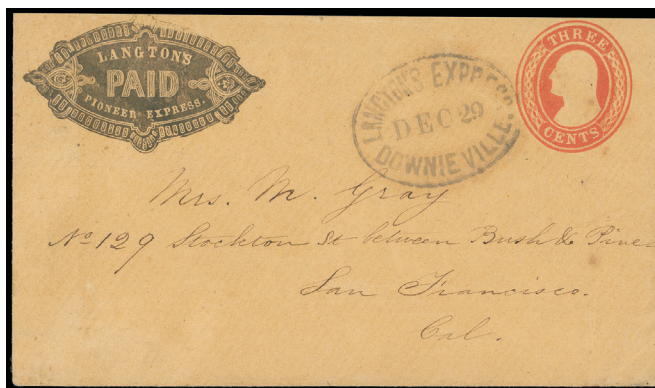 LANGTON'S
PAID
PIONEER EXPRESS.
LANGTON'S EXPRESS.
DEC 29
DOWNIEVILLE.
THREE
CENTS
Mrs. M. Gray
No 129 Stockton St between Bush & Pine
San Francisco.
Cal.